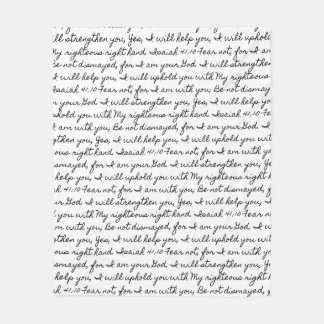 Isaiah 41:10 Fear not, for I am
ll strengthen you, Yes, I will help you, I will uphold
My righteous right hand. Isaiah 41:10 Fear not, for I am
Be not dismayed, for I am your God. I will strengthen
you, Yes, I will help you, I will uphold you with My righteous
Isaiah 41:10 Fear not, for I am with you, Be not dismay
I am your God. I will strengthen you, Yes, I will help
uphold you with My righteous right hand. Isaiah 41:10
am with you, Be not dismayed, for I am your God. I
then you, Yes, I will help you, I will uphold you with
eous right hand. Isaiah 41:10 Fear not, for I am with you,
dismayed, for I am your God. I will strengthen you, Yes,
help you, I will uphold you with My righteous right hand.
41:10 Fear not, for I am with you, Be not dismayed, f
your God. I will strengthen you, Yes, I will help you, I
ld you with My righteous right hand. Isaiah 41:10 Fear
with you, Be not dismayed, for I am your God. I w
ngthen you, Yes, I will help you, I will uphold you with
righteous right hand. Isaiah 41:10 Fear not, for I am with
not dismayed, for I am your God. I will strengthen you
will help you, I will uphold you with My righteous right h
Isaiah 41:10 Fear not, for I am with you, Be not dismayed, g